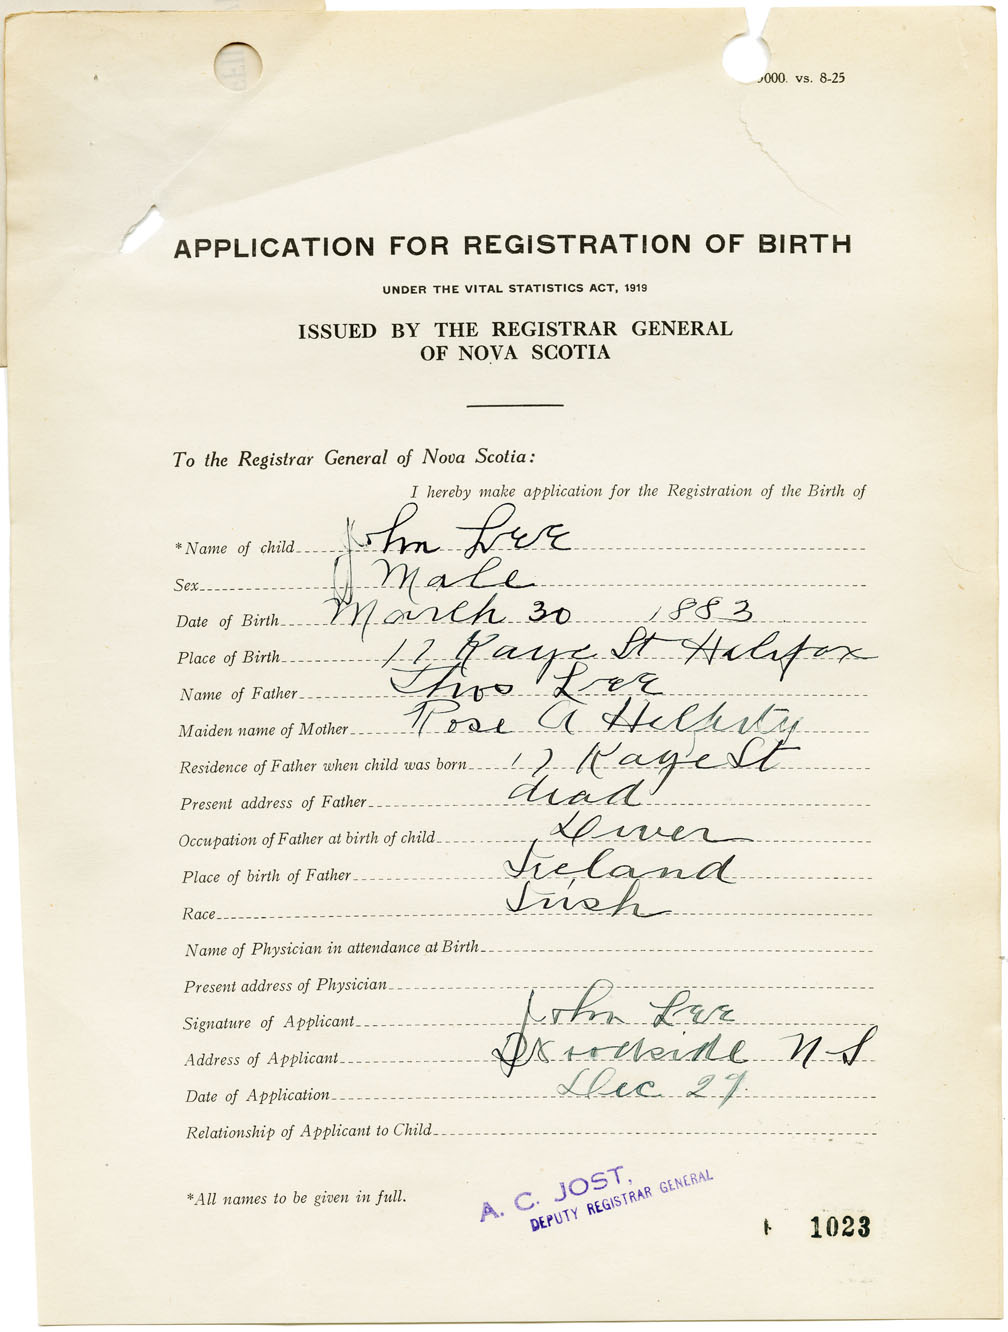 000. vs. 8-25
APPLICATION FOR REGISTRATION OF BIRTH
UNDER THE VITAL STATISTICS ACT, 1919
ISSUED BY THE REGISTRAR GENERAL
OF NOVA SCOTIA
To the Registrar General of Nova Scotia:
I hereby make application for the Registration of the Birth of
*Name of child John Lee
Sex Male
Date of Birth March 30 1883
Place of Birth 17 Kaye St Halifax
Name of Father Thos Lee
Maiden name of Mother Rose A
Residence of Father when child was born 17 Kaye St
Present address of Father dead
Occupation of Father at birth of child Diver
Place of birth of Father Ireland
Race Irish
Name of Physician in attendance at Birth
Present address of Physician
Signature of Applicant John Lee
Address of Applicant Woodside N S
Date of Application Dec 29
Relationship of Applicant to Child
*All names to be given in full.
A. C. JOST,
DEPUTY REGISTRAR GENERAL
1023